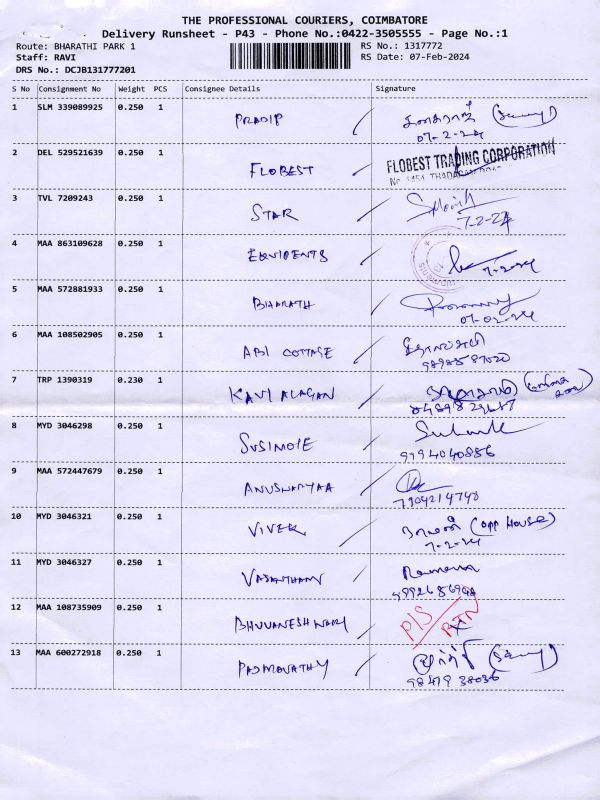 THE PROFESSIONAL COURIERS, COIMBATORE
Delivery Runsheet - P43 - Phone No.:0422-3505555 - Page No.:1
Route: BHARATHI PARK 1 RS No.: 1317772
Staff: RAVI RS Date: 07-Feb-2024
DRS No.: DCJB131777201
S No Consignment No Weight PCS Consignee Details Signature
1 SLM 339089925 0.250 1 PRADIP
07-2-24
2 DEL 529521639 0.250 1 FLOBEST FLOBEST TRADING CORPORATION
3 TVL 7209243 0.250 1 STAR
7-2-24
4 MAA 863109628 0.250 1
7-2-24
5 MAA 572881933 0.250 1 BHARATH
07-02-24
6 MAA 108502905 0.250 1 ABI COTTAGE
7 TRP 1390319 0.230 1 KAVI ALAGAN
8 MYD 3046298 0.250 1
9994040886
9 MAA 572447679 0.250 1
7904214740
10 MYD 3046321 0.250 1 VIVEK (OPP HOUSE)
7-2-24
11 MYD 3046327 0.250 1
12 MAA 108735909 0.250 1 BHUVANESHWARY P/S RTN
13 MAA 600272918 0.250 1 PADMAVATHY
98479 38036